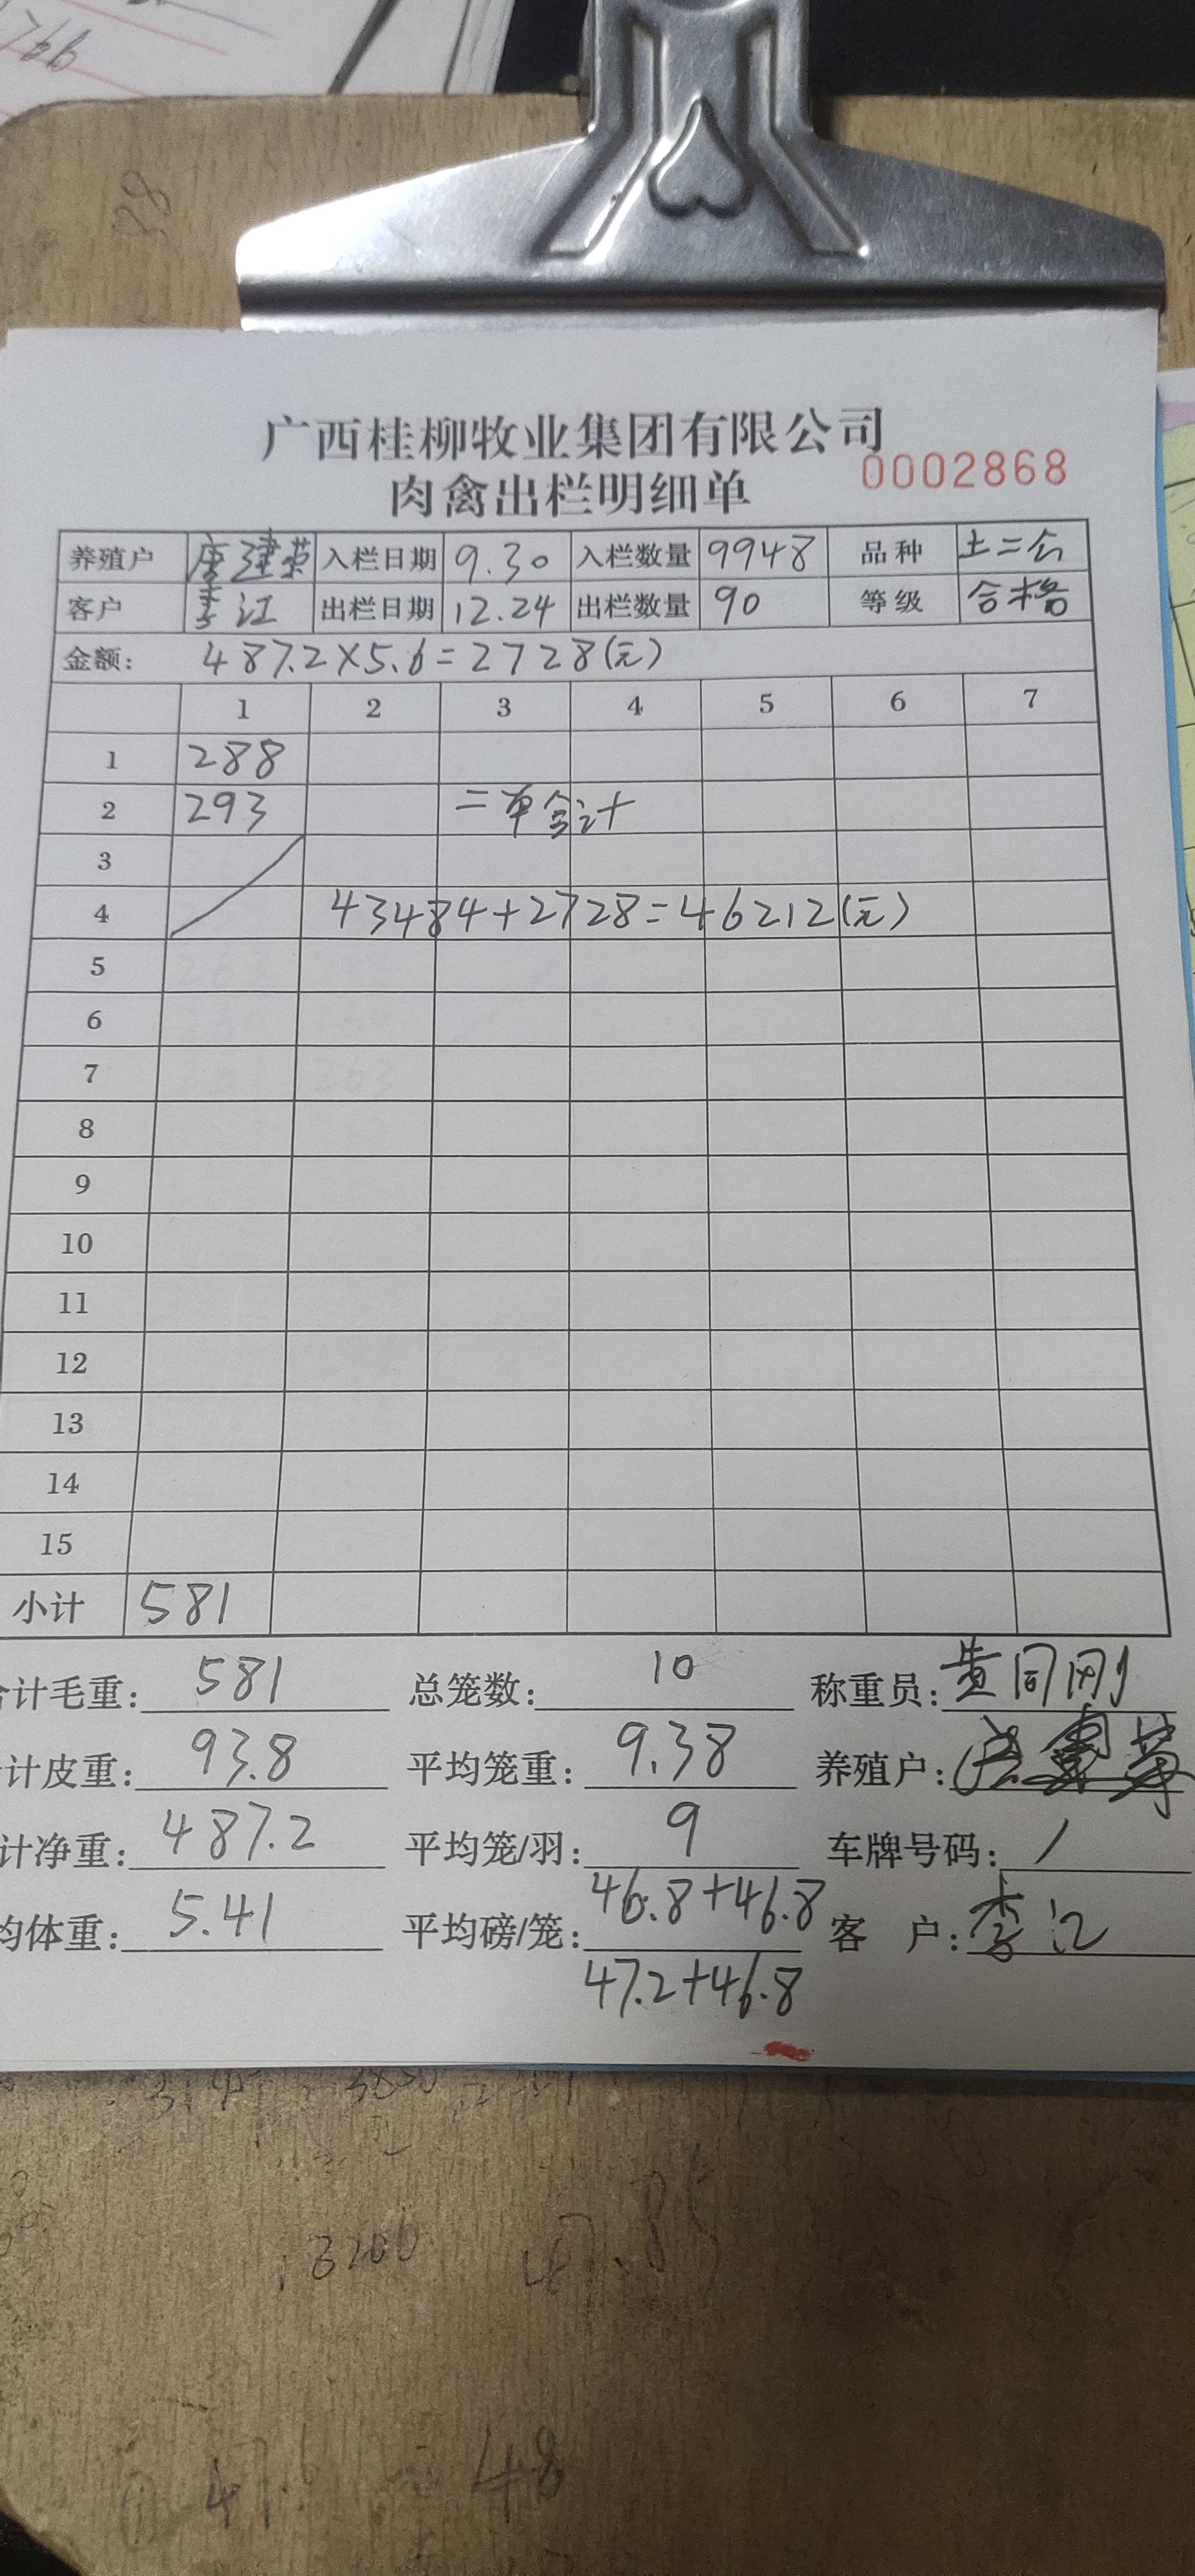 766
28
广西桂柳牧业集团有限公司
肉禽出栏明细单 0002868
养殖户 唐建荣 入栏日期 9.30 入栏数量 9948 品种 土二公
客户 李江 出栏日期 12.24 出栏数量 90 等级 合格
金额: 487.2×5.6=2728(元)
1 2 3 4 5 6 7
1 288
2 293 二单合计
3
4 43484+2728=46212(元)
5 263
6
7 263
8
9
10
11
12
13
14
15
小计 581
计毛重: 581 总笼数: 10 称重员: 黄同刚
计皮重: 93.8 平均笼重: 9.38 养殖户: 唐建荣
计净重: 487.2 平均笼/羽: 9 车牌号码: /
均体重: 5.41 平均磅/笼: 46.8+46.8 客 户: 李江
47.2+46.8
13206 47.85
48